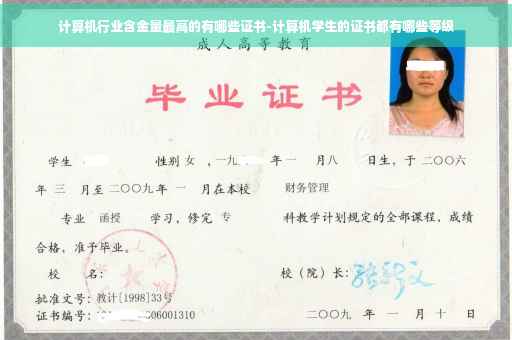 计算机行业含金量最高的有哪些证书-计算机学生的证书都有哪些等级
成人高等教育
毕业证书
学生 性别 女 ，一九 年 一 月八 日生，于 二〇〇六
年 三 月至 二〇〇九 年 一 月在本校 财务管理
专业 函授 学习，修完 专 科教学计划规定的全部课程，成绩
合格，准予毕业。
校 名： 校（院）长：
批准文号：教计[1998]33号
证书编号： 006001310 二〇〇九 年 一 月 十 日